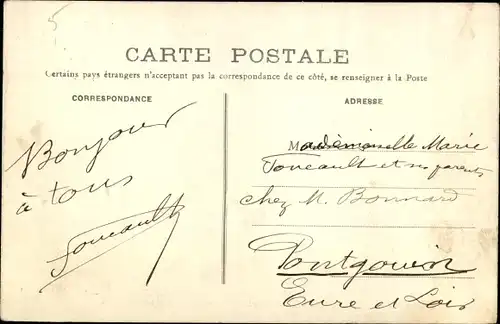 5
CARTE POSTALE
Certains pays étrangers n'acceptant pas la correspondance de ce côté, se renseigner à la Poste
CORRESPONDANCE
Bonjour
à tous
Foucault
ADRESSE
Mademoiselle Marie
Foucault et ses parents
chez M. Bonnard
Pontgouin
Eure et Loir